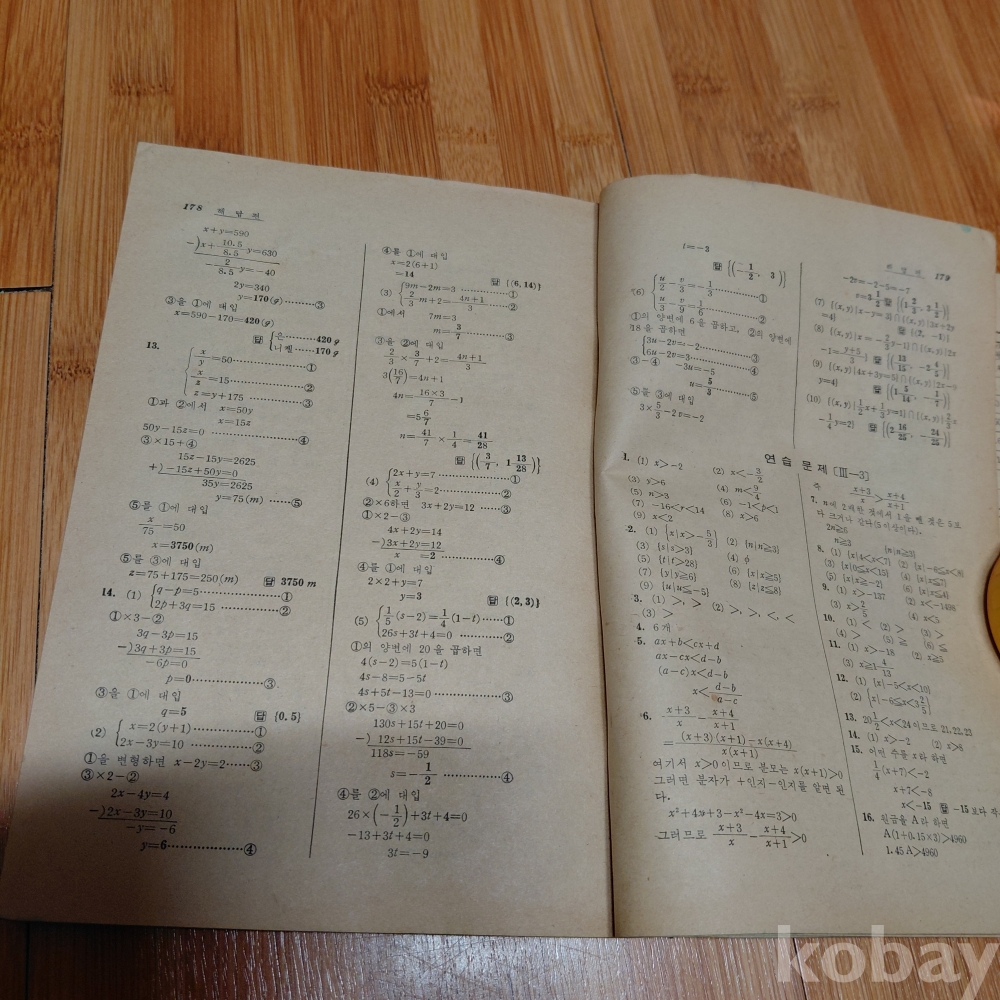 178 해 답 편
x+y=590
-)x+10.5/8.5 y=630
-2/8.5 y=-40
2y=340
y=170(g)············③
③을 ①에 대입
x=590-170=420(g)
답 {은········420 g
니켈······170 g
13.
{x/y=50··················①
x/z=15··················②
z=y+175 ············③
①과 ②에서 x=50y
x=15z
50y-15z=0 ··················④
③×15+④
15z-15y=2625
+)-15z+50y=0
35y=2625
y=75(m) ······⑤
⑤를 ①에 대입
x/75=50
x=3750(m)
⑤를 ③에 대입
z=75+175=250(m) 답 3750 m
14. (1) {q-p=5··················①
2p+3q=15 ············②
①×3-②
3q-3p=15
-)3q+3p=15
-6p=0
p=0··················③
③을 ①에 대입
q=5 답 {0.5}
(2) {x=2(y+1)············①
2x-3y=10 ············②
①을 변형하면 x-2y=2······③
③×2-②
2x-4y=4
-)2x-3y=10
-y=-6
y=6··················④
④를 ①에 대입
x=2(6+1)
=14
답 {(6,14)}
(3) {9m-2m=3 ············①
2/3 m+2=4n+1/3 ······②
①에서 7m=3
m=3/7 ············③
③을 ②에 대입
2/3×3/7+2=4n+1/3
3(16/7)=4n+1
4n=16×3/7-1
=5 6/7
n=41/7×1/4=41/28
답 {(3/7, 1 13/28)}
(4) {2x+y=7 ··················①
x/2+y/3=2··················②
②×6하면 3x+2y=12 ······③
①×2-③
4x+2y=14
-)3x+2y=12
x =2 ············④
④를 ①에 대입
2×2+y=7
y=3 답 {(2,3)}
(5) {1/5(s-2)=1/4(1-t)······①
26s+3t+4=0 ············②
①의 양변에 20을 곱하면
4(s-2)=5(1-t)
4s-8=5-5t
4s+5t-13=0 ············③
②×5-③×3
130s+15t+20=0
-)12s+15t-39=0
118s=-59
s=-1/2 ············④
④를 ②에 대입
26×(-1/2)+3t+4=0
-13+3t+4=0
3t=-9
t=-3
답 {(-1/2, 3)}
(6) {u/2-v/3=-1/3············①
u/3-v/9=1/6············②
①의 양변에 6을 곱하고, ②의 양변에
18을 곱하면
{3u-2v=-2··················③
6u-2v=3··················④
③-④ -3u=-5
u=5/3 ············⑤
⑤를 ③에 대입
3×5/3-2v=-2
해 답 편 179
-2v=-2-5=-7
(8)
(9)
(10)
연습 문제 [Ⅲ-3]
1. (1) x>-2 (2) x<-3/2
(3) y>6 (4) m<9/4
(5) n>3 (6) -1<p<1
(7) -16<r<14 (8) x>6
(9) x<2
2. (1) {x|x>-5/3} (2) {n|n≧3}
(3) {s|s>3} (4) φ
(5) {t|t>28} (6) {x|x≧5}
(7) {y|y≧6} (8) {z|z≦8}
(9) {u|u≦-5}
3. (1) >, > (2) >, >, <, <
(3) >
4. 6개
5. ax+b<cx+d
ax-cx<d-b
(a-c)x<d-b
x<d-b/a-c
6. x+3/x-x+4/x+1
=(x+3)(x+1)-x(x+4)/x(x+1)
여기서 x>0이므로 분모는 x(x+1)>0
그러면 분자가 +인지-인지를 알면 된
다.
x²+4x+3-x²-4x=3>0
그러므로 x+3/x-x+4/x+1>0
즉 x+3/x>x+4/x+1
7. n에 2배한 것에서 1을 뺀 것은 5보
다 크거나 같다(5이상이다).
2n≧6
n≧3 {n|n≧3}
8. (1) {x|4<x<7} (2) {x|-6≦x<8}
(3) {x|0≦x<15} (4) {x|x≦3}
(5) {x|x≧-2}
9. (1) x>-137 (2) x<-1498
(3) x>2/5 (4) x<5
10. (1) < (2) > (3) >
(4) > (5) ≧ (6) ≦
11. (1) x>-18 (2) x≧5
(3) x≧1 4/13
12. (1) {x|-5<x<10}
(2) {x|-6≦x<3 2/5}
13. 20 1/2<x<24이므로 21,22,23
14. (1) x>-2 (2) x>8
15. 어떤 수를 x라 하면
1/4(x+7)<-2
x+7<-8
x<-15 답 -15보다 작
16. 원금을 A라 하면
A(1+0.15×3)>4960
1.45A>4960
kobay